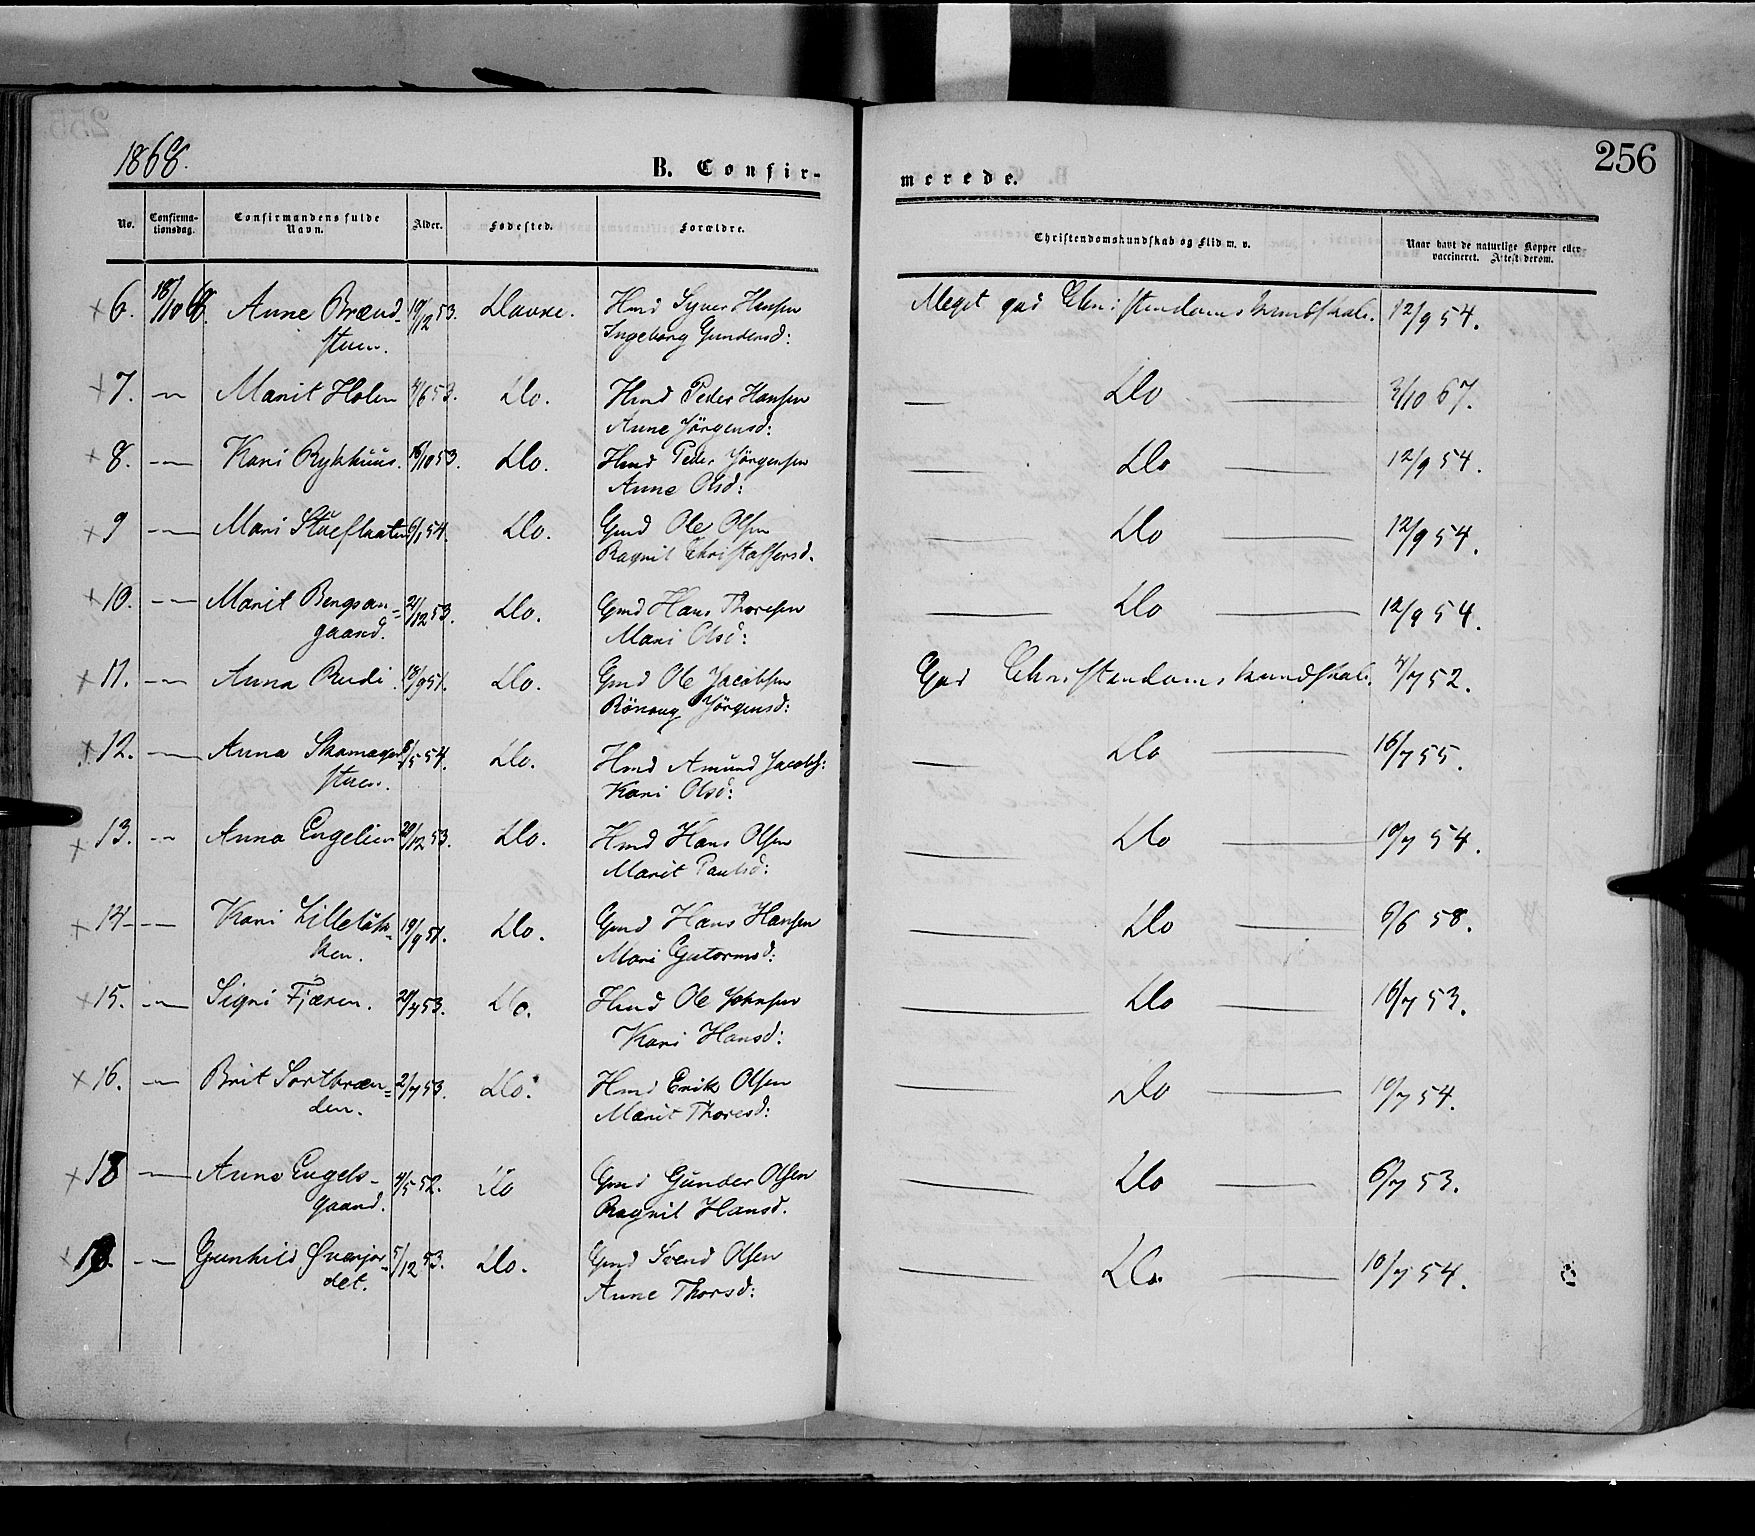 1868.
B. Confir-
merede.
256
No.
Confirma-
tionsdag.
Confirmandens fulde
Navn.
Alder.
Fødested.
Forældre.
Christendomskundskab og Flid m. v.
Naar havt de naturlige Kopper eller
vaccineret. Attest derom.
6. 18/10 68. Anne Brænd- 19/12 53. Dovre. Hmd Syver Hansen Meget god Christendomskundskab. 12/9 54.
stuen. Ingeborg Gundersd:
7. — Marit Holen 4/6 53. Do. Hmd Peder Hansen — Do — 3/10 67.
Anne Jörgensd:
8. — Kari Rykhuus. 16/10 53. Do. Hmd Peder Jörgensen — Do — 12/9 54.
Anne Olsd:
9 — Mari Stueflaaten 6/1 54. Do. Gmd Ole Olsen — Do — 12/9 54.
Ragnil Christoffersd.
10. — Marit Bergsan= 21/12 53. Do. Gmd Hans Thoresen — Do — 12/9 54.
gaard. Mari Olsd:
11. — Anna Rudi. 18/9 51. Do. Gmd Ole Jacobsen God Christendomskundskab. 4/7 52.
Rönaug Jörgensd:
12. — Anna Skamager 8/5 54. Do. Hmd Amund Jacobs: — Do — 16/7 55.
stuen. Kari Olsd:
13. — Anna Engelien 29/12 53. Do. Hmd Hans Olsen — Do — 10/7 54.
Marit Paulsd:
14 — Kari Lilleløk- 19/9 51. Do. Gmd Hans Hansen — Do — 6/6 58.
ken. Mari Gutormsd:
15. — Signi Fjæren. 29/4 53. Do. Hmd Ole Johnsen — Do — 16/7 53.
Kari Hansd:
16. — Brit Sortbræn= 2/7 53. Do. Hmd Erik Olsen — Do — 10/7 54.
den. Marit Thoresd:
18 — Anne Engels- 4/5 52. Do Gmd Gunder Olsen — Do — 6/7 53.
gaard. Ragnil Hansd.
19. — Gunhild Øverjor- 5/12 53. Do. Gmd Svend Olsen — Do. — 10/7 54.
det. Anne Thorsd: